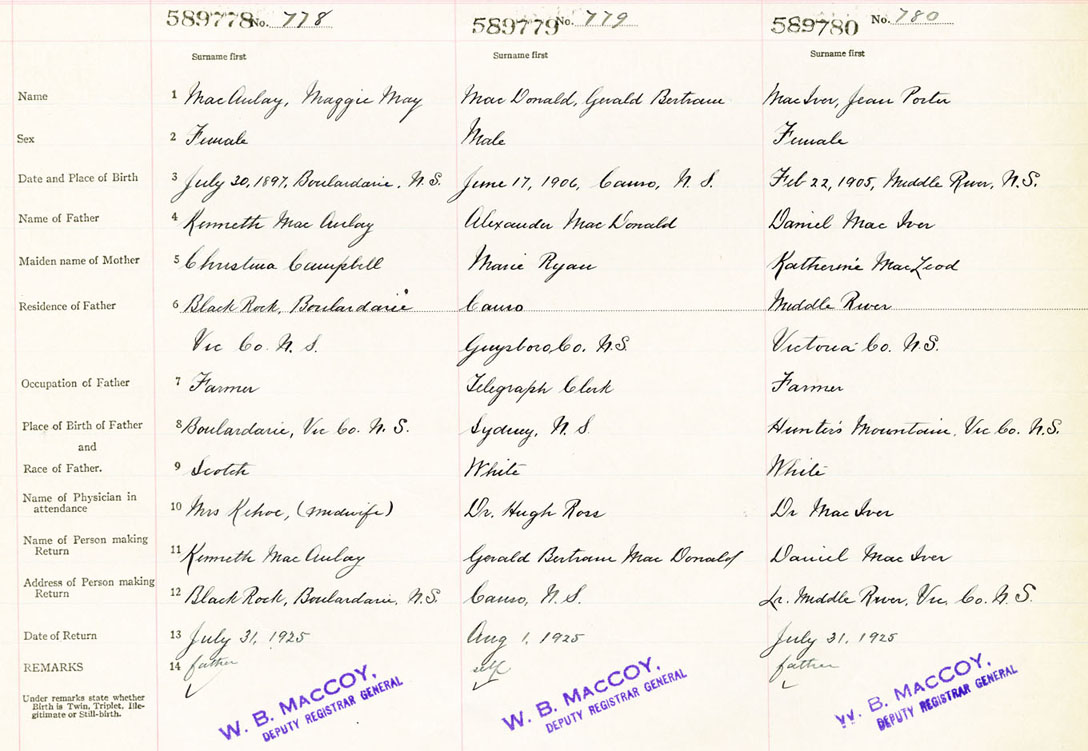 589778 No. 778 589779 No. 779 589780 No. 780
Surname first Surname first Surname first
Name 1 MacAulay, Maggie May Mac Donald, Gerald Bertram MacIver, Jean Porter
Sex 2 Female Male Female
Date and Place of Birth 3 July 20, 1897, Boulardarie, N.S. June 17, 1906, Canso, N.S. Feb 22, 1905, Middle River, N.S.
Name of Father 4 Kenneth Mac Aulay Alexander Mac Donald Daniel Mac Iver
Maiden name of Mother 5 Christina Campbell Marie Ryan Katherine MacLeod
Residence of Father 6 Black Rock, Boulardarie Canso Middle River
Vic Co. N.S. Guysboro, Co. N.S. Victoria Co. N.S.
Occupation of Father 7 Farmer Telegraph Clerk Farmer
Place of Birth of Father 8 Boulardarie, Vic Co. N.S. Sydney, N.S. Hunter's Mountain, Vic Co. N.S.
and
Race of Father. 9 Scotch White White
Name of Physician in
attendance 10 Mrs Kehoe, (midwife) Dr. Hugh Ross Dr Mac Iver
Name of Person making
Return 11 Kenneth Mac Aulay Gerald Bertram Mac Donald Daniel Mac Iver
Address of Person making
Return 12 Black Rock, Boulardarie, N.S. Canso, N.S. Lr. Middle River, Vic. Co. N.S.
Date of Return 13 July 31, 1925 Aug 1, 1925 July 31, 1925
REMARKS 14 father self father
Under remarks state whether
Birth is Twin, Triplet, Ille-
gitimate or Still-birth.
W. B. MACCOY, W. B. MACCOY, W. B. MACCOY,
DEPUTY REGISTRAR GENERAL DEPUTY REGISTRAR GENERAL DEPUTY REGISTRAR GENERAL